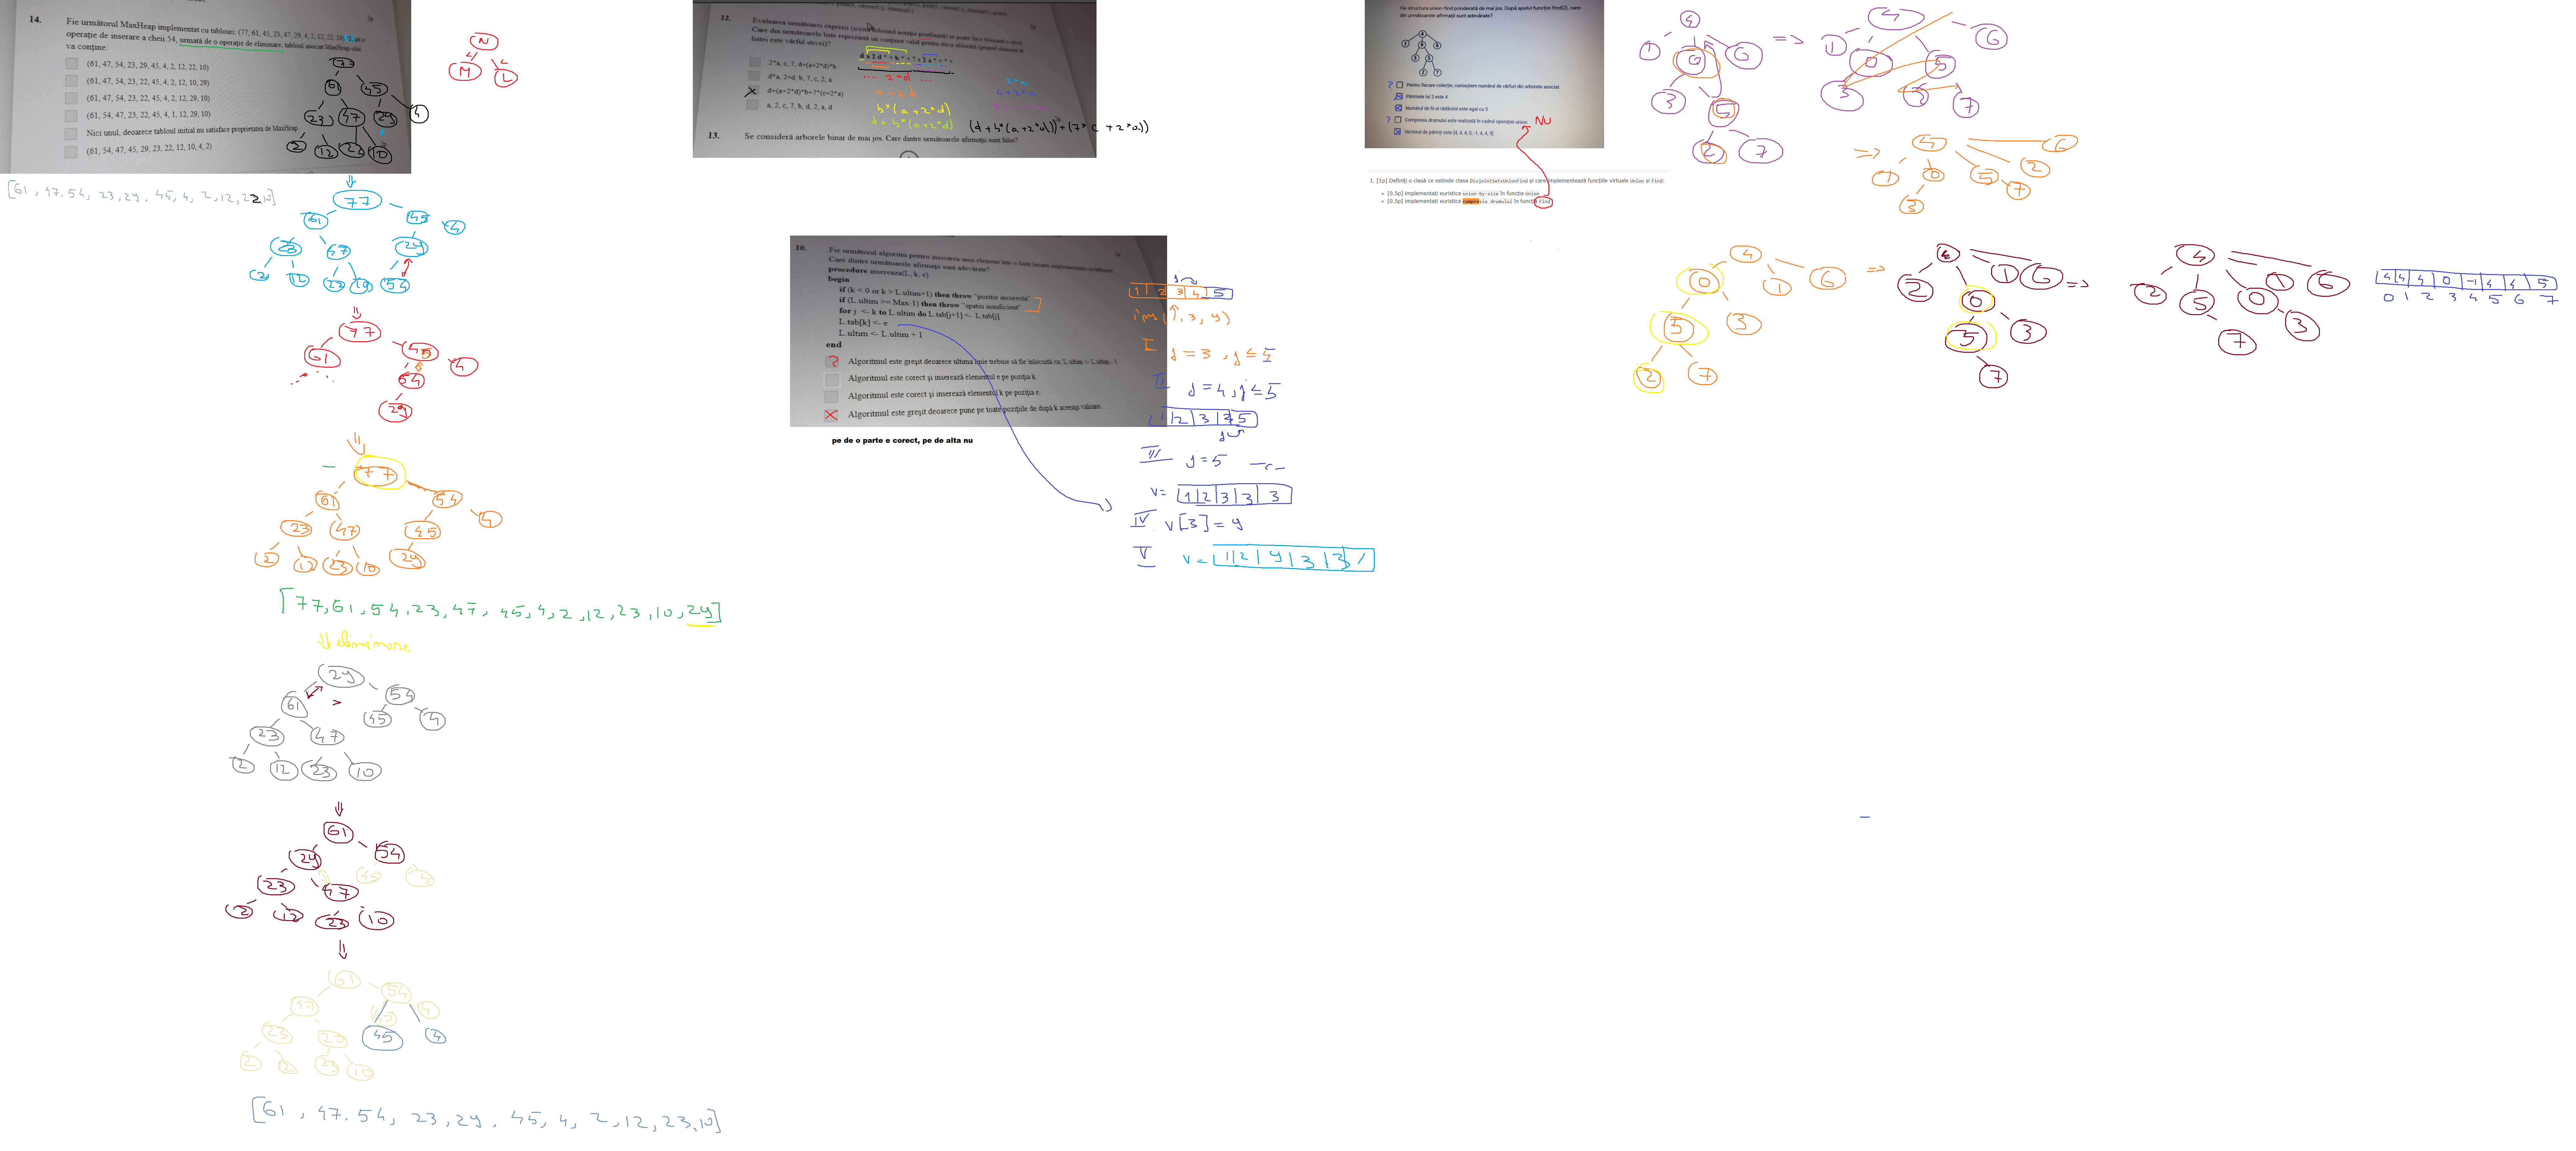 14.
Fie următorul MaxHeap implementat cu tablouri: (77, 61, 45, 23, 47, 29, 4, 2, 12, 22, 10)
operație de inserare a cheii 54, urmată de o operație de eliminare, tabloul asociat MaxHeap-ului
va conține:
(61, 47, 54, 23, 29, 45, 4, 2, 12, 22, 10)
(61, 47, 54, 23, 22, 45, 4, 2, 12, 10, 29)
(61, 47, 54, 23, 22, 45, 4, 2, 12, 29, 10)
(61, 54, 47, 23, 22, 45, 4, 1, 12, 29, 10)
Nici unul, deoarece tabloul inițial nu satisface proprietatea de MaxHeap.
(61, 54, 47, 45, 29, 23, 22, 12, 10, 4, 2)
77
61 45
23 47 29 4
2 12 22 10
N
M L
[61, 47, 54, 23, 29, 45, 4, 2, 12, 22, 10]
77
61 45
23 47 29 4
2 12 23 10 54
77
61 45
54 4
29
77
61 54
23 47 45 4
2 12 23 10 29
[77, 61, 54, 23, 47, 45, 4, 2, 12, 23, 10, 29]
eliminare
29
61 > 54
23 47 45 4
2 12 23 10
61
29 54
23 47 45 4
2 12 23 10
61
47 54
45 4
[61, 47, 54, 23, 29, 45, 4, 2, 12, 23, 10]
12.
Care din următoarele liste reprezintă un conținut valid pentru stiva utilizată
listei este vârful stivei)?
2*a, c, 7, d+(a+2*d)*b
d*a, 2+d, b, 7, c, 2, a
d+(a+2*d)*b+7*(c+2*a)
a, 2, c, 7, b, d, 2, a, d
... 2*d ...
a+2*d
b*(a+2*d)
d+b*(a+2*d)
2*a
c+2*a
(d+b*(a+2*d))+(7*c+2*a))
13.
Se consideră arborele binar de mai jos. Care dintre următoarele afirmații sunt false?
10.
Fie următorul algoritm pentru inserarea unui element într-o listă liniară
Care dintre următoarele afirmații sunt adevărate?
procedure insereaza(L, k, e)
begin
if (k < 0 or k > L.ultim+1) then throw "pozitie incorecta"
if (L.ultim >= Max-1) then throw "spatiu insuficient"
for j <- k to L.ultim do L.tab[j+1] <- L.tab[j]
L.tab[k] <- e
L.ultim <- L.ultim + 1
end
?
Algoritmul este greșit deoarece ultima linie trebuie să fie înlocuită cu: L.ultim <- L.ultim -1
Algoritmul este corect și inserează elementul e pe poziția k.
Algoritmul este corect și inserează elementul k pe poziția e.
Algoritmul este greșit deoarece pune pe toate pozițiile de după k aceeași valoare.
pe de o parte e corect, pe de alta nu
1 2 3 4 5
I j=3, j≤5
II j=4, j≤5
1 2 3 3 5
III j=5
v= 1 2 3 3 3
IV v[3]=9
V v= 1 2 9 3 3
Fie structura union-find ponderată de mai jos. După apelul funcției find(2), care
din următoarele afirmații sunt adevărate?
? Pentru fiecare colecție, cunoaștem numărul de vârfuri din arborele asociat
Părintele lui 2 este 4
Numărul de fii ai rădăcinii este egal cu 5
? Compresia drumului este realizată în cadrul operației union
NU
Vectorul de părinți este [4, 4, 4, 0, -1, 4, 4, 5]
1. [1p] Definiți o clasă ce extinde clasa DisjointSetsUnionFind și care implementează funcțiile virtuale Union și Find:
[0.5p] implementați euristica union-by-size în funcția Union
[0.5p] implementați euristica compresia drumului în funcția Find
4
1 0 6
3 5
2 7
=>
4
1 0 5 6
3 2 7
=>
4 6
1 0 5 2
3 7
4
0 1 6
5 3
2 7
=>
4
2 0 1 6
5 3
7
=>
4
2 5 0 1 6
7 3
4 4 4 0 -1 4 4 5
0 1 2 3 4 5 6 7